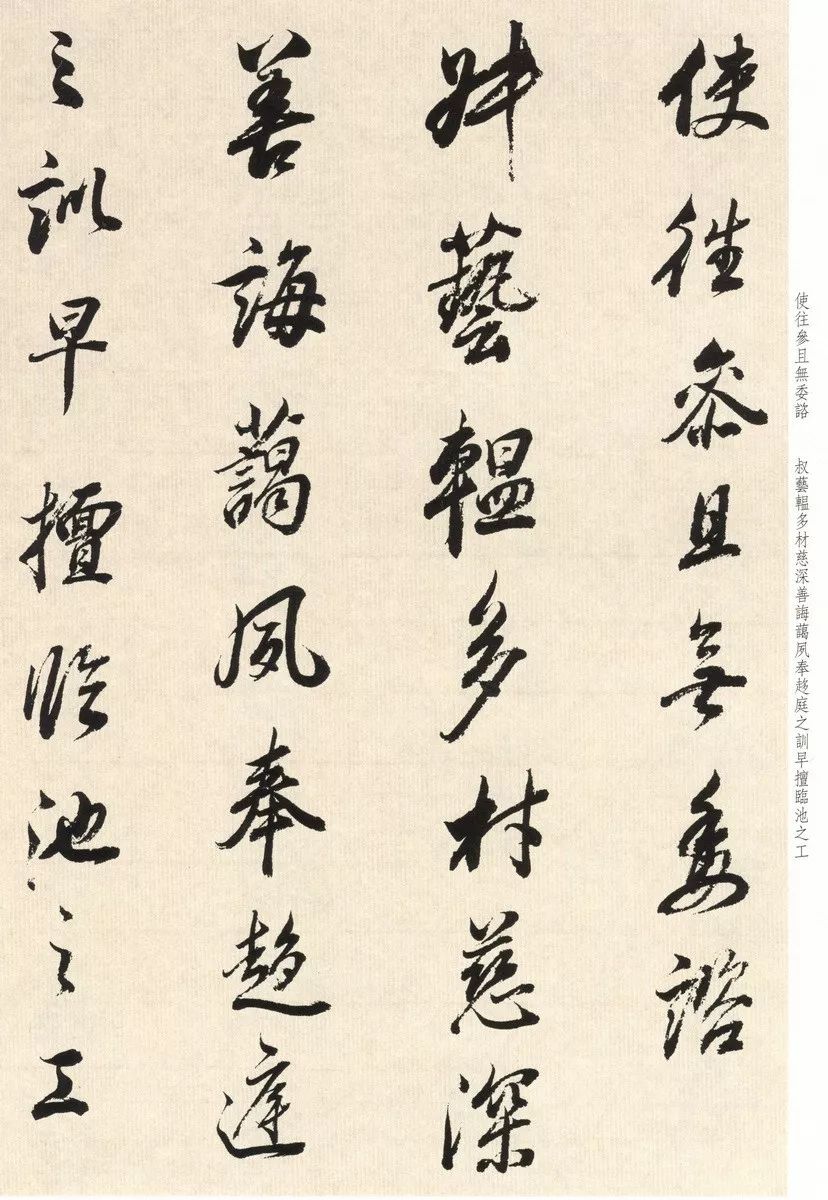 使往參且無委諮
叔藝韞多材慈深
善誨藹夙奉趍庭
之訓早擅臨池之工
使往參且無委諮　叔藝韞多材慈深善誨藹夙奉趍庭之訓早擅臨池之工